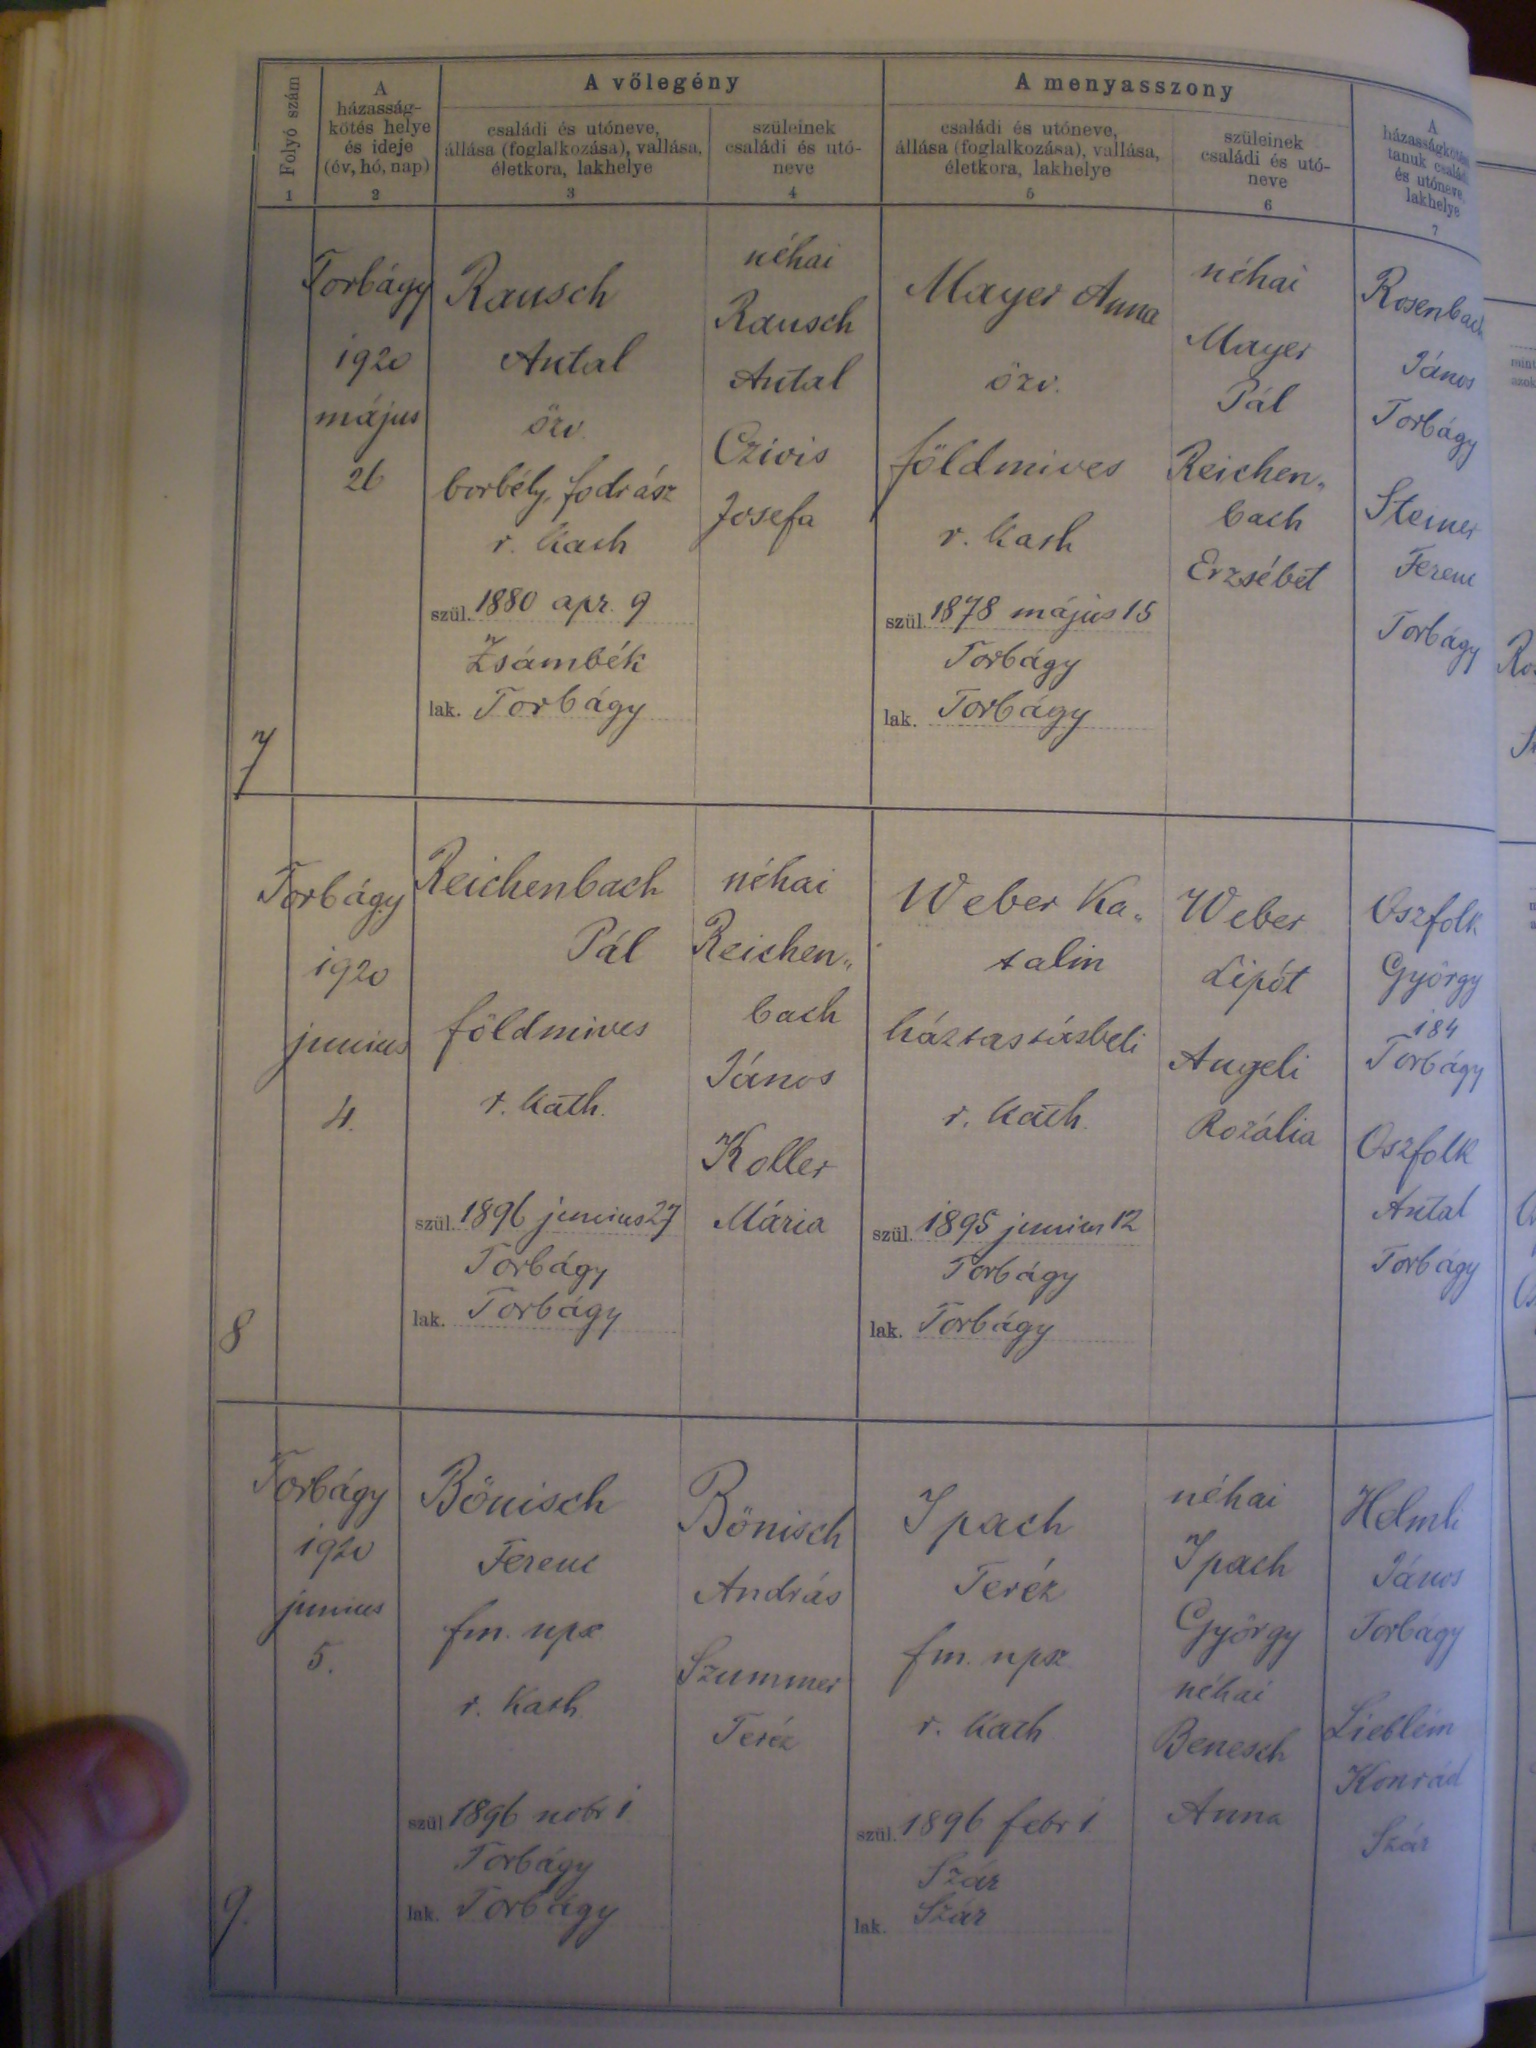 A vőlegény
A menyasszony
Folyó szám
1
A
házasság-
kötés helye
és ideje
(év, hó, nap)
2
családi és utóneve,
állása (foglalkozása), vallása,
életkora, lakhelye
3
szüleinek
családi és utó-
neve
4
családi és utóneve,
állása (foglalkozása), vallása,
életkora, lakhelye
5
szüleinek
családi és utó-
neve
6
A
házasságkötési
tanuk családi
és utóneve,
lakhelye
7
7
Torbágy
1920
május
26
Rausch
Antal
özv.
borbély, fodrász
r. kath
szül. 1880 apr. 9
Zsámbék
lak. Torbágy
néhai
Rausch
Antal
Czivis
Josefa
Mayer Anna
özv.
földmives
r. kath
szül. 1878 május 15
Torbágy
lak. Torbágy
néhai
Mayer
Pál
Reichen„
bach
Erzsébet
Rosenbach
János
Torbágy
Steiner
Ferenc
Torbágy
8
Torbágy
1920
junius
4.
Reichenbach
Pál
földmives
r. kath.
szül. 1896 junius 27
Torbágy
lak. Torbágy
néhai
Reichen„
bach
János
Koller
Mária
Weber Ka„
talin
háztartásbeli
r. kath.
szül. 1895 junius 12
Torbágy
lak. Torbágy
Weber
Lipót
Angeli
Rozália
Oszfolk
György
184
Torbágy
Oszfolk
Antal
Torbágy
9.
Torbágy
1920
junius
5.
Bönisch
Ferenc
fm. npsz
r. kath
szül 1896 nobr 1
Torbágy
lak. Torbágy
Bönisch
András
Szummer
Teréz
Ipach
Teréz
fm. npsz
r. kath
szül. 1896 febr 1
Szár
lak. Szár
néhai
Ipach
György
néhai
Benesch
Anna
János
Torbágy
Konrád
Szár